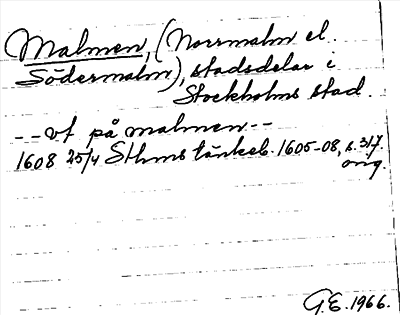 Malmen, (Norrmalm el.
Södermalm), stadsdelar i
Stockholms stad.
-- vt på malmen --
1608 25/4 Sthms tänkeb. 1605-08, s. 317.
orig.
G.E. 1966.